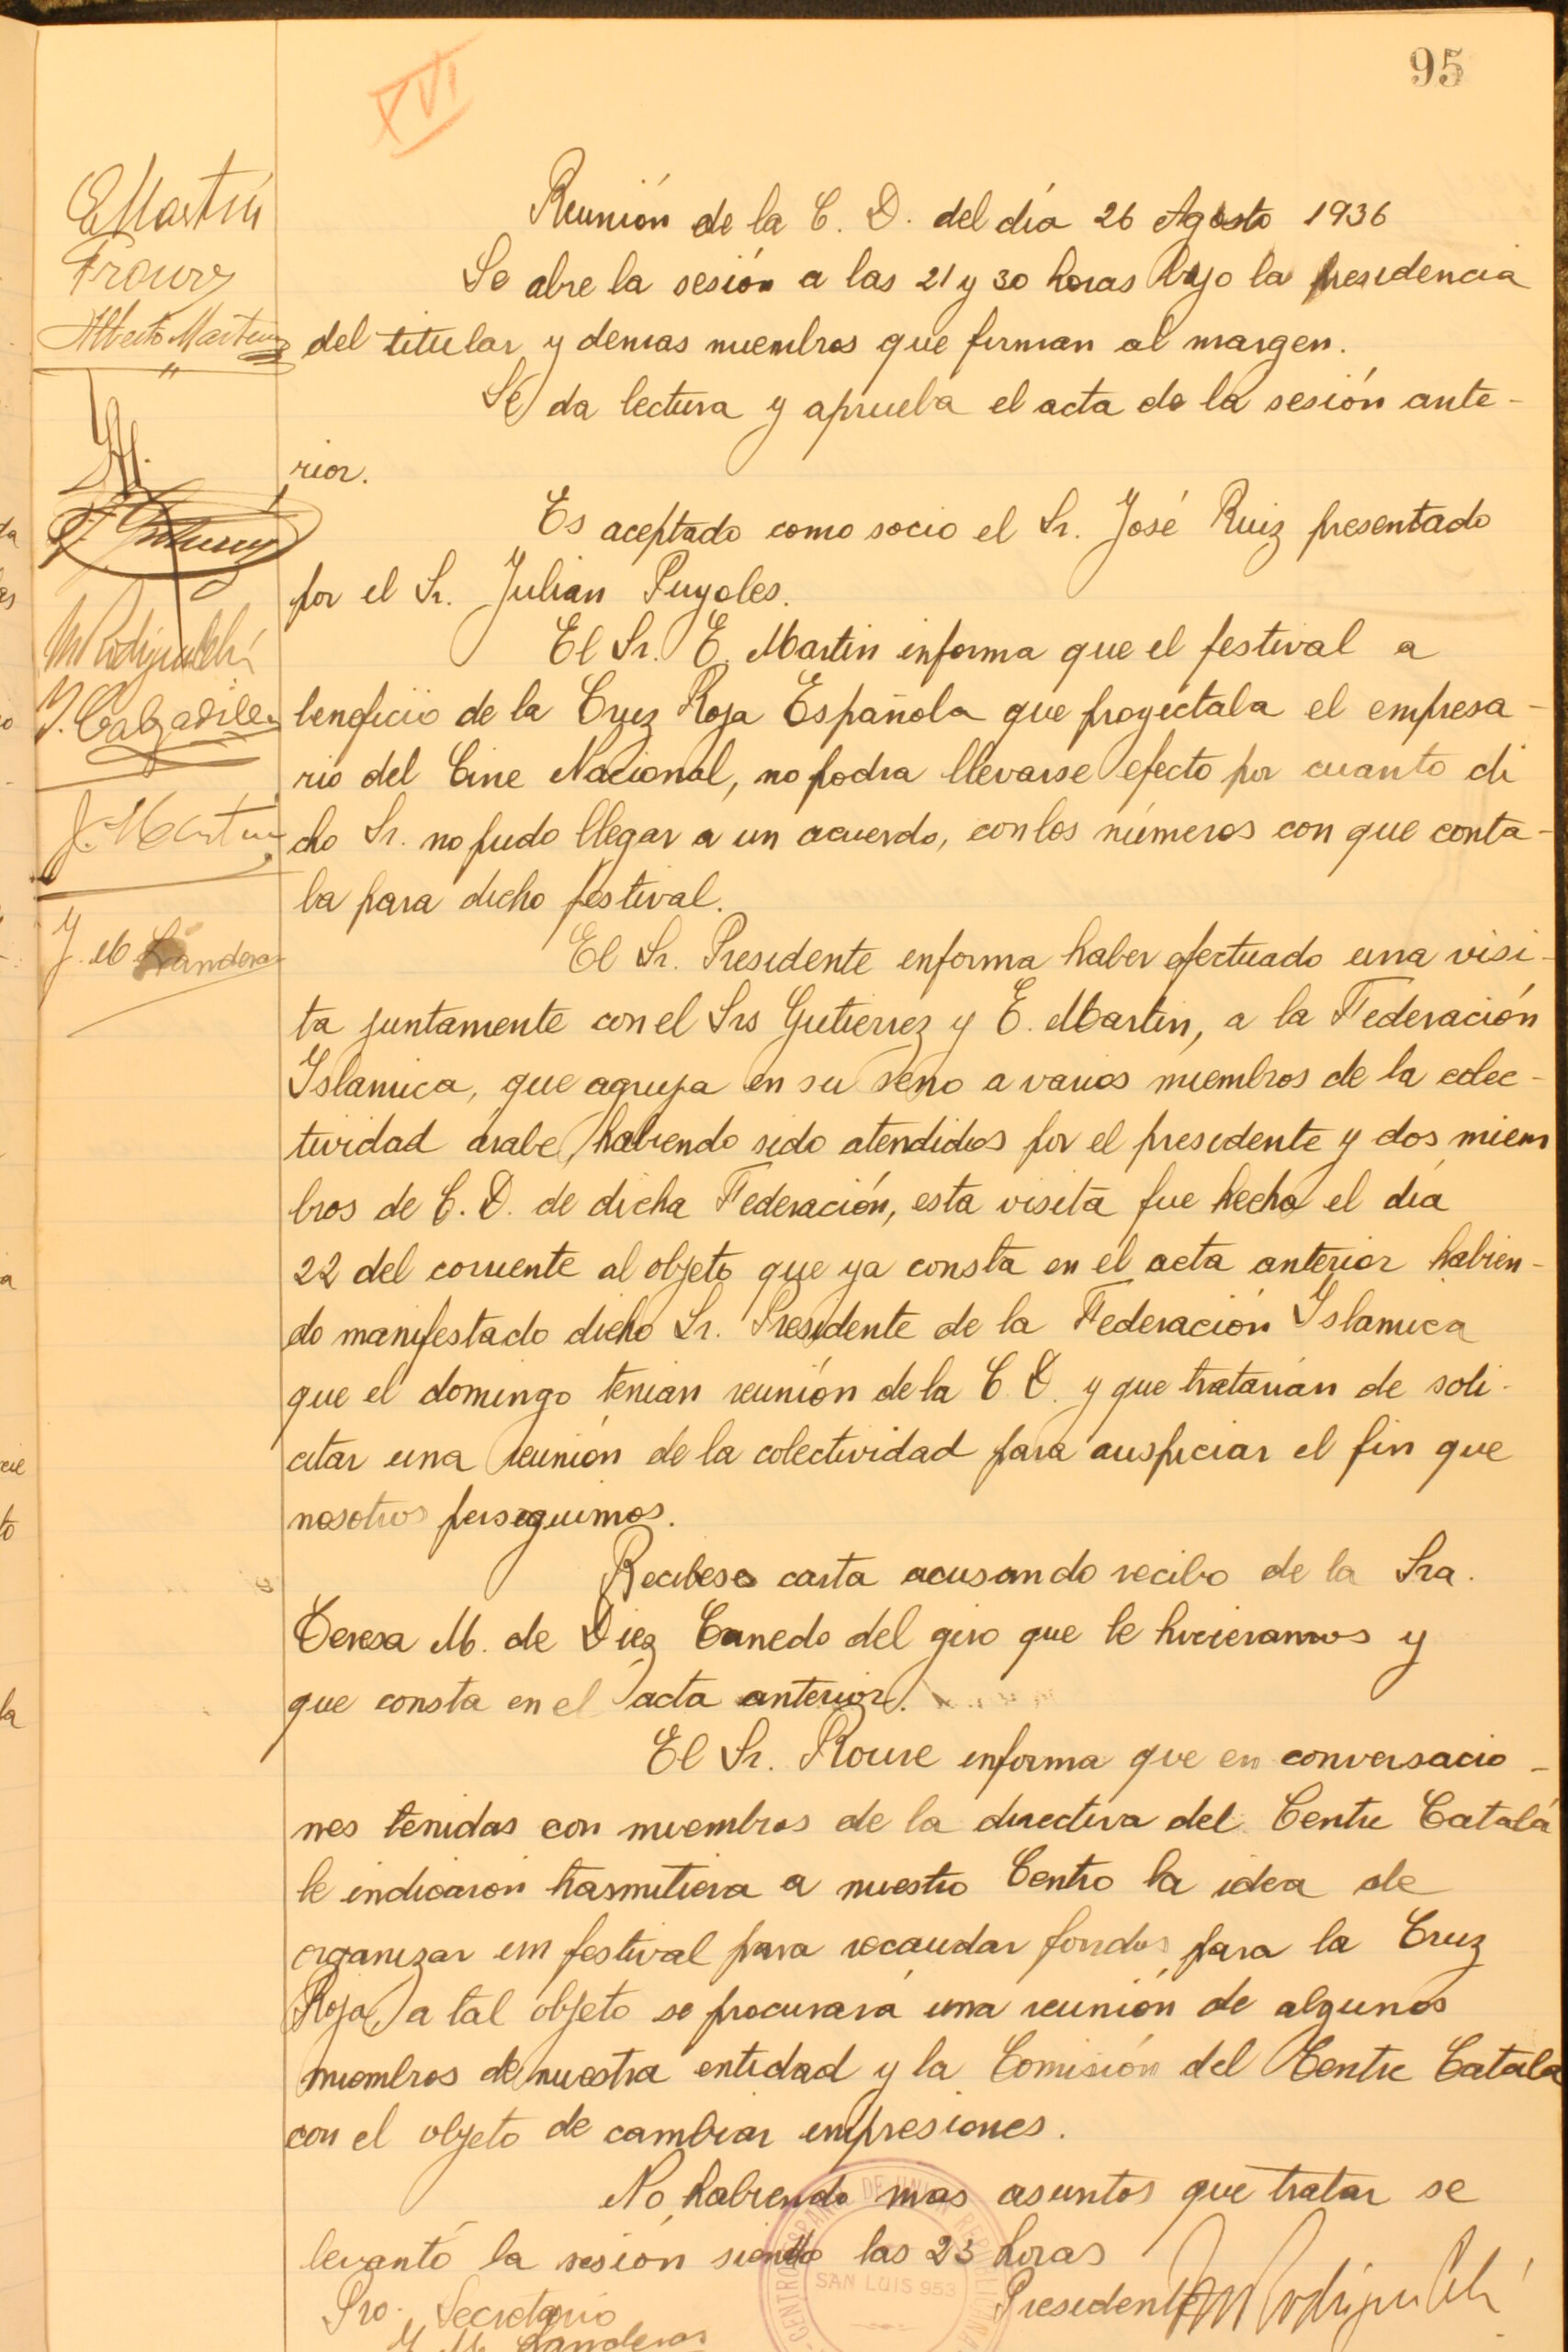 95
XVI
EMartín
Alberto Martinez
J. Calzadilla
J. Martin
J. M. Landeras
Reunión de la C. D. del día 26 Agosto 1936
Se abre la sesión a las 21 y 30 horas bajo la presidencia
del titular y demas miembros que firman al margen.
Se da lectura y aprueba el acta de la sesión ante-
rior.
Es aceptado como socio el Sr. José Ruiz presentado
por el Sr. Julian Puyoles.
El Sr. E. Martin informa que el festival a
beneficio de la Cruz Roja Española que proyectaba el empresa-
rio del Cine Nacional, no podra llevarse efecto por cuanto di
cho Sr. no pudo llegar a un acuerdo, con los números con que conta-
ba para dicho festival.
El Sr. Presidente informa haber efectuado una visi-
ta juntamente con el Srs Gutierrez y E. Martin, a la Federación
Islamica, que agrupa en su seno a varios miembros de la colec-
tividad arabe, habiendo sido atendidos por el presidente y dos miem
bros de C. D. de dicha Federación, esta visita fue hecha el día
22 del corriente al objeto que ya consta en el acta anterior habien-
do manifestado dicho Sr. Presidente de la Federación Islamica
que el domingo tenian reunión de la C. D. y que tratarian de soli-
citar una reunión de la colectividad para auspiciar el fin que
nosotros perseguimos.
Recibese carta acusando recibo de la Sra.
Teresa M. de Diez Canedo del giro que le hicieramos y
que consta en el acta anterior.
El Sr. Roure informa que en conversacio-
nes tenidas con miembros de la directiva del Centre Catalá
le indicaron trasmitiera a nuestro Centro la idea de
organizar un festival para recaudar fondos para la Cruz
Roja, a tal objeto se procurará una reunión de algunos
miembros de nuestra entidad y la Comisión del Centre Catala
con el objeto de cambiar impresiones.
No habiendo mas asuntos que tratar se
levantó la sesión siendo las 23 horas
Pro. Secretario
Presidente
J. M. Landeras
SAN LUIS 953